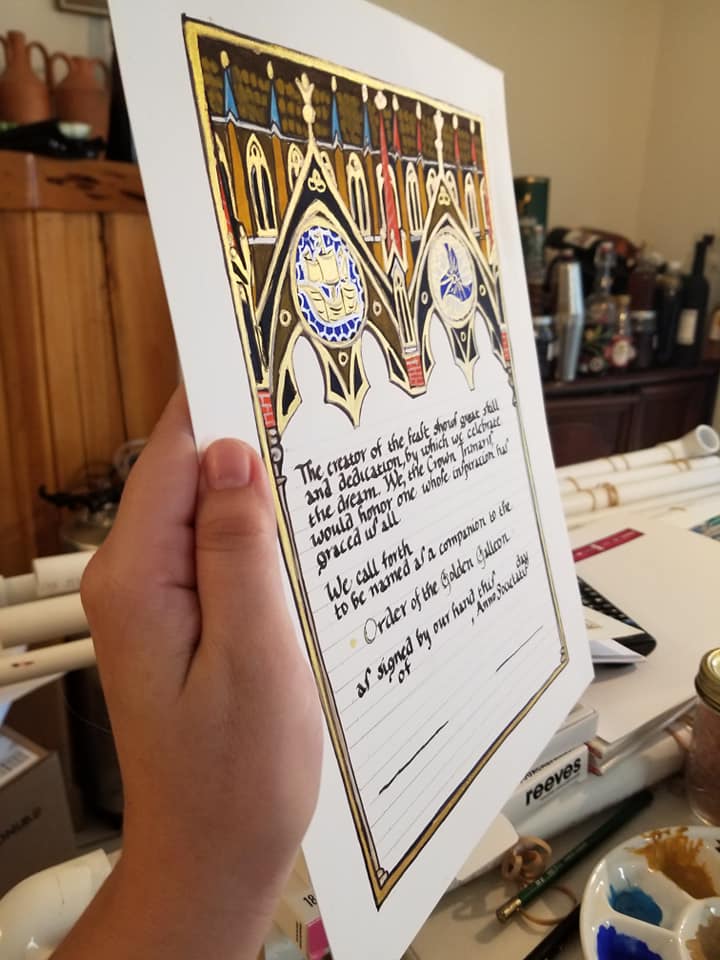 The creator of the feaſt ſhowſ great ſkill
and dedication, by which we celebrate
the dream. We, the Crown Inſmariſ
would honor one whoſe inſpiration haſ
graced uſ all.
We call forth
to be named aſ a companion to the
Order of the Golden Galleon
aſ signed by our hand thiſ day
of , Anno Societatiſ
reeves
18